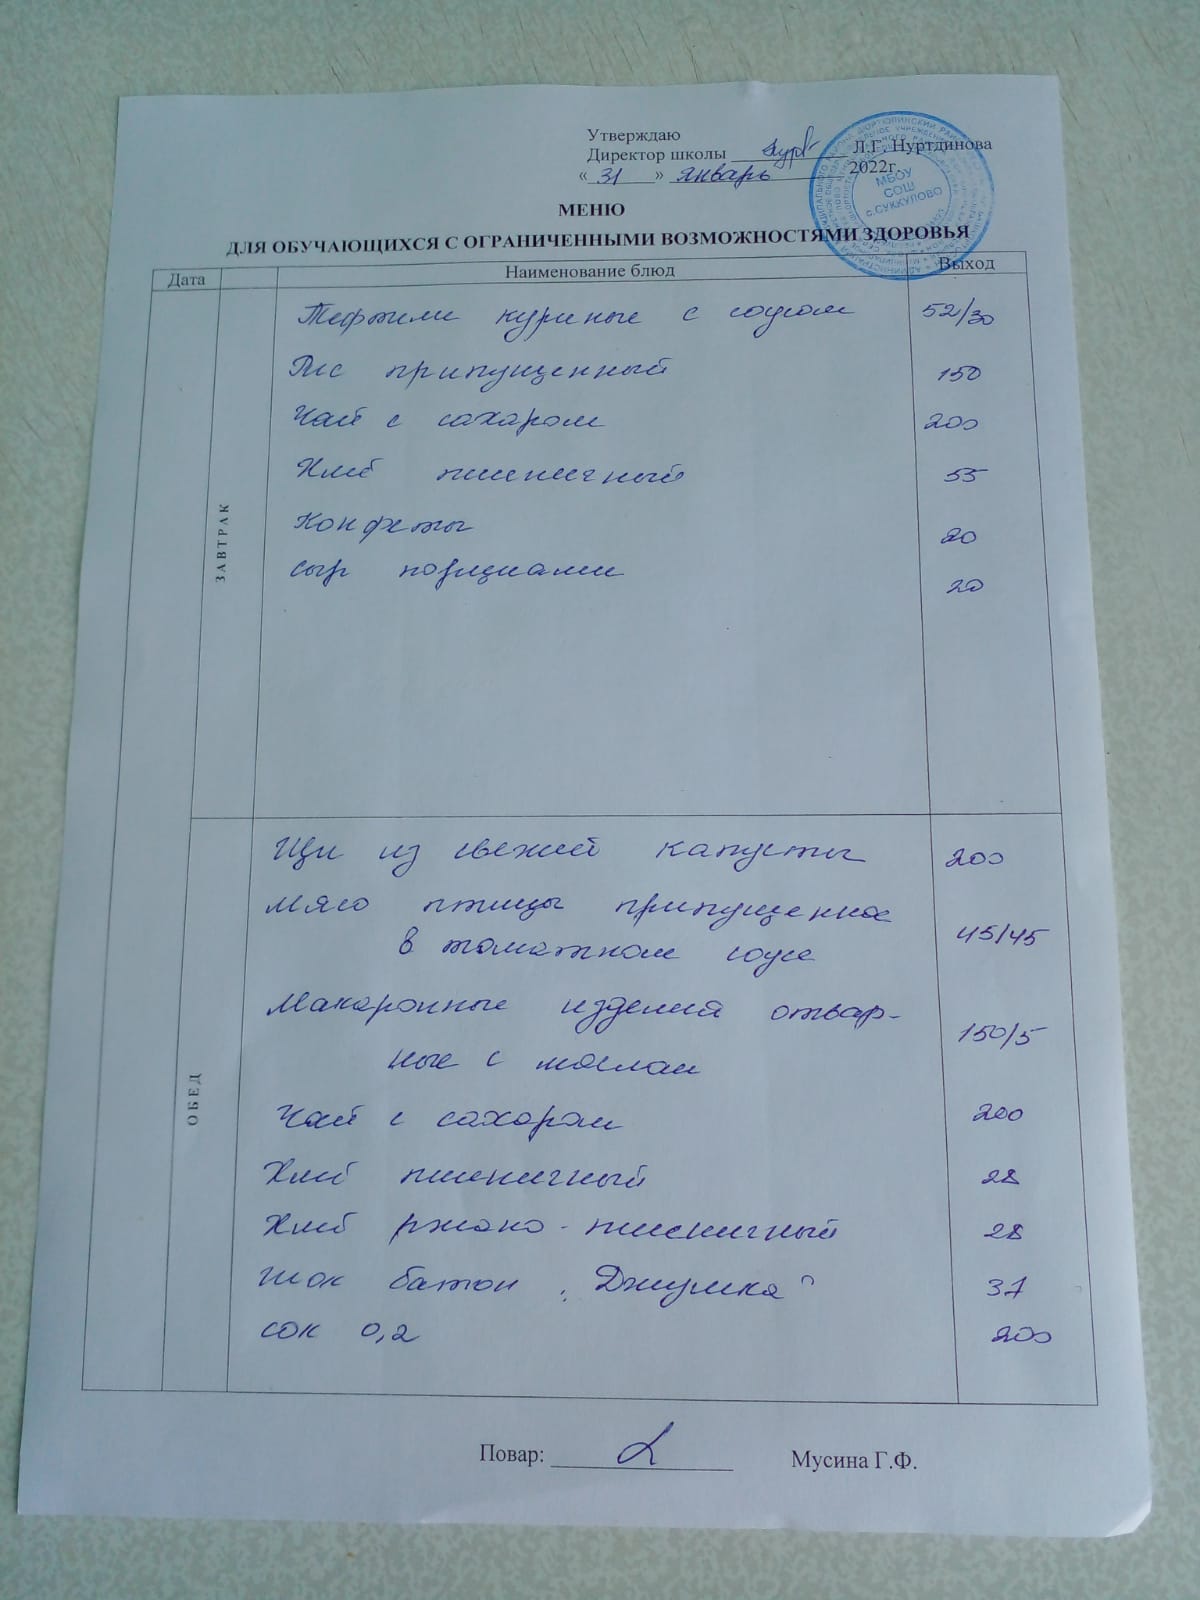 Утверждаю
Директор школы Л.Г. Нуртдинова
« 31 » январь 2022г.
МБОУ
СОШ
с.СУККУЛОВО
МЕНЮ
ДЛЯ ОБУЧАЮЩИХСЯ С ОГРАНИЧЕННЫМИ ВОЗМОЖНОСТЯМИ ЗДОРОВЬЯ
Дата Наименование блюд Выход
ЗАВТРАК
Тефтели куриные с соусом 52/30
Рис припущенный 150
Чай с сахаром 200
Хлеб пшеничный 55
Конфеты 20
сыр порциами 20
ОБЕД
Щи из свежей капусты 200
Мясо птицы припущенное
в томатном соусе 45/45
Макаронные изделий отвар-
ные с маслом 150/5
Чай с сахаром 200
Хлеб пшеничный 28
Хлеб ржано-пшеничный 28
шок батон „Джумка" 37
сок 0,2 200
Повар: Мусина Г.Ф.